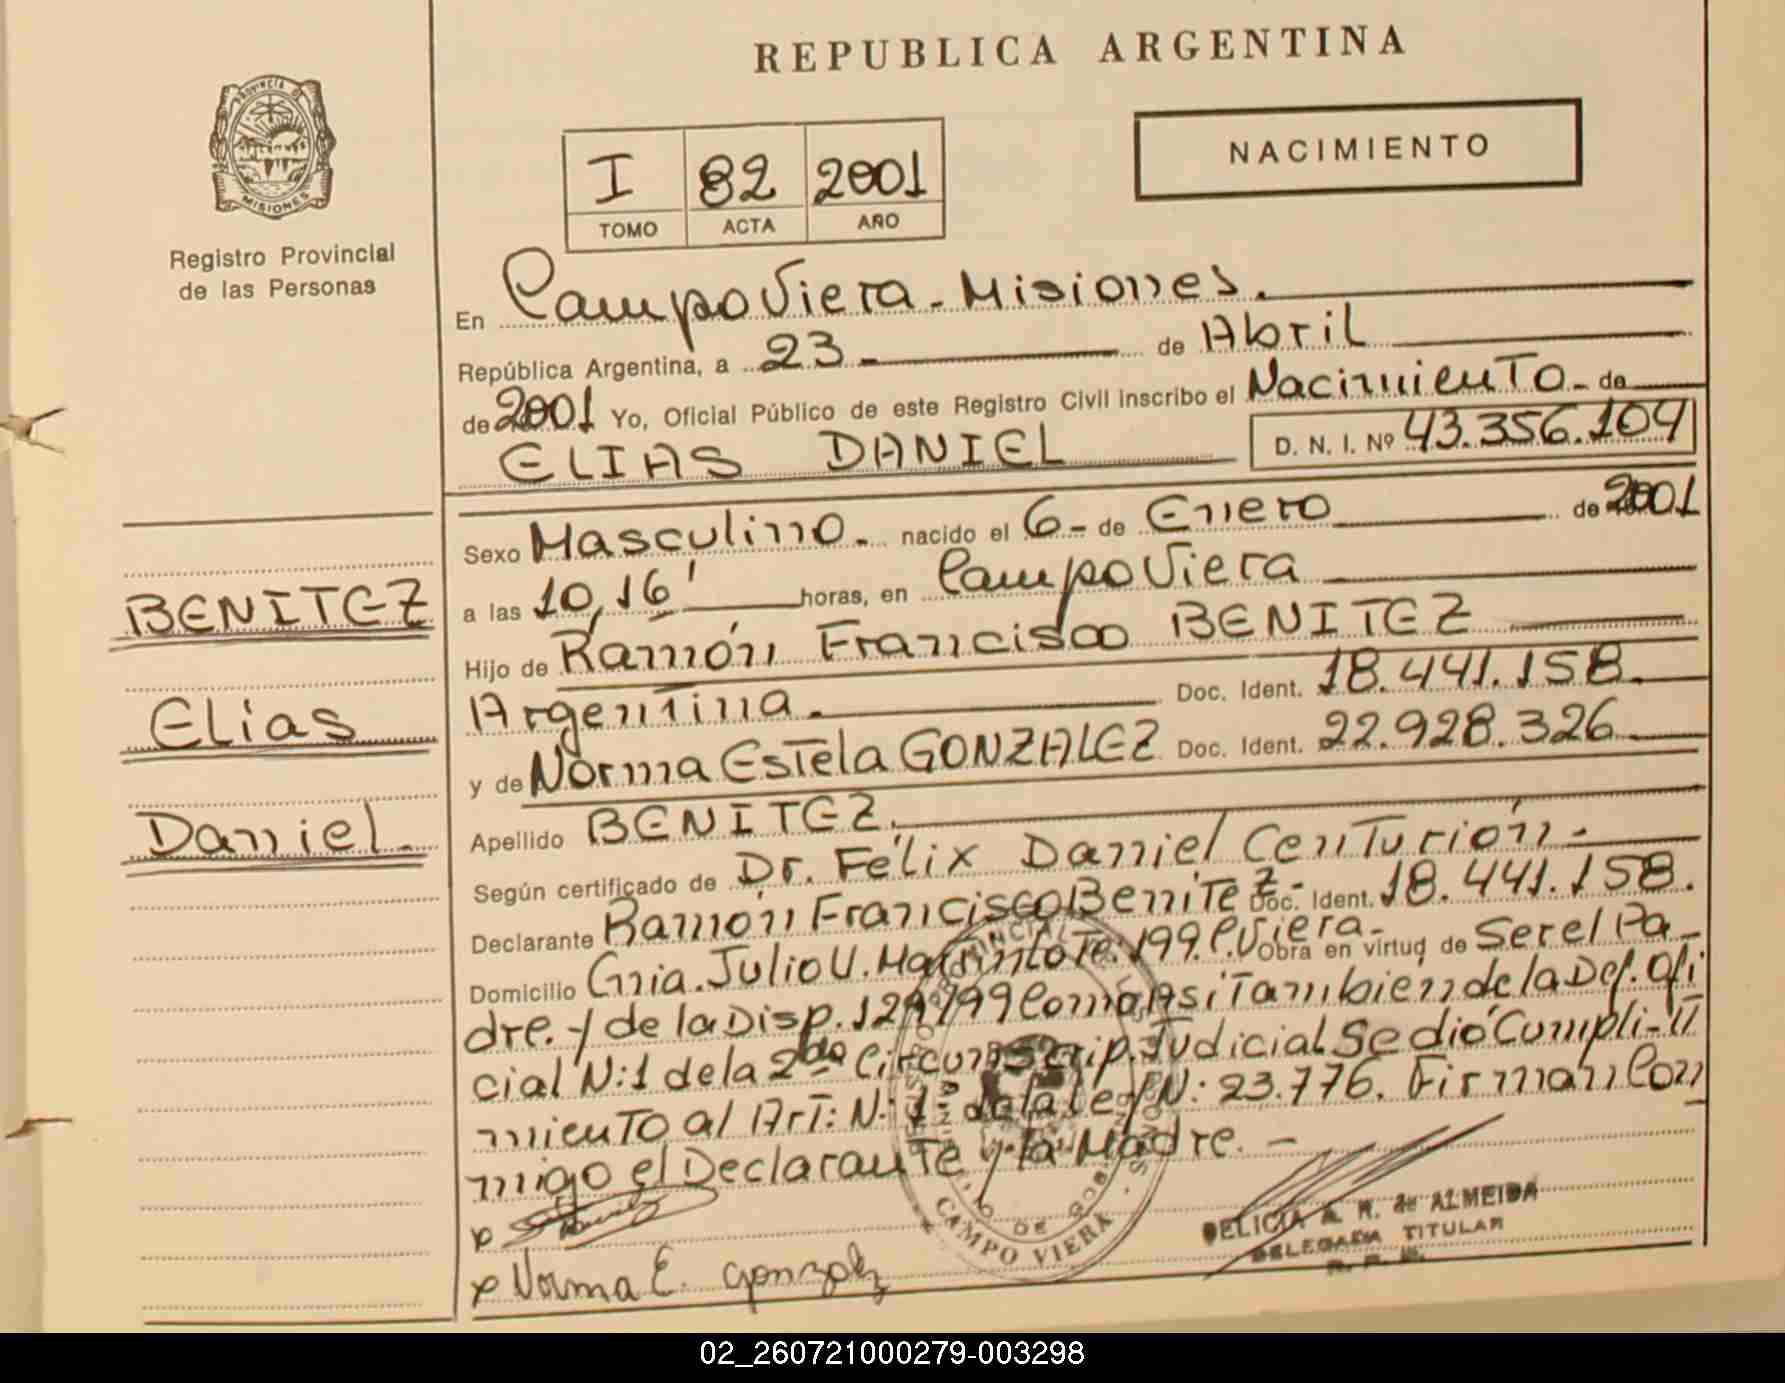 REPUBLICA ARGENTINA
NACIMIENTO
PROVINCIA DE
MISIONES
Registro Provincial
de las Personas
I 82 2001
TOMO ACTA AÑO
En Campo Viera - Misiones.
República Argentina, a 23 - de Abril
de 2001 Yo, Oficial Público de este Registro Civil inscribo el Nacimiento - de
ELIAS DANIEL D. N. I. Nº 43.356.104
Sexo Masculino. nacido el 6 - de Enero de 2001
a las 10,16' horas, en Campo Viera
Hijo de Ramón Francisco BENITEZ
Argentina. Doc. Ident. 18.441.158.
y de Norma Estela GONZALEZ Doc. Ident. 22.928.326
Apellido BENITEZ.
Según certificado de Dr. Félix Daniel Centurión -
Declarante Ramón Francisco Benitez - Doc. Ident. 18.441.158.
Domicilio Cnia. Julio U. Martin Lote: 199. C. Viera. - Obra en virtud de Ser el Pa-
dre. y de la Disp. 129/99 Como Asi También de la Def. Ofi
cial N: 1 de la 2da Circunscrip. Judicial Se dió Cumpli-
miento al Art: N: 1: de la ley N: 23.776. Firman Con
migo el Declarante y la Madre. -
x
x Norma E. Gonzalez
BENITEZ
Elias
Daniel.
CAMPO VIERA
DELICIA A. R. de ALMEIDA
DELEGADA TITULAR
R. P. P.
02_260721000279-003298